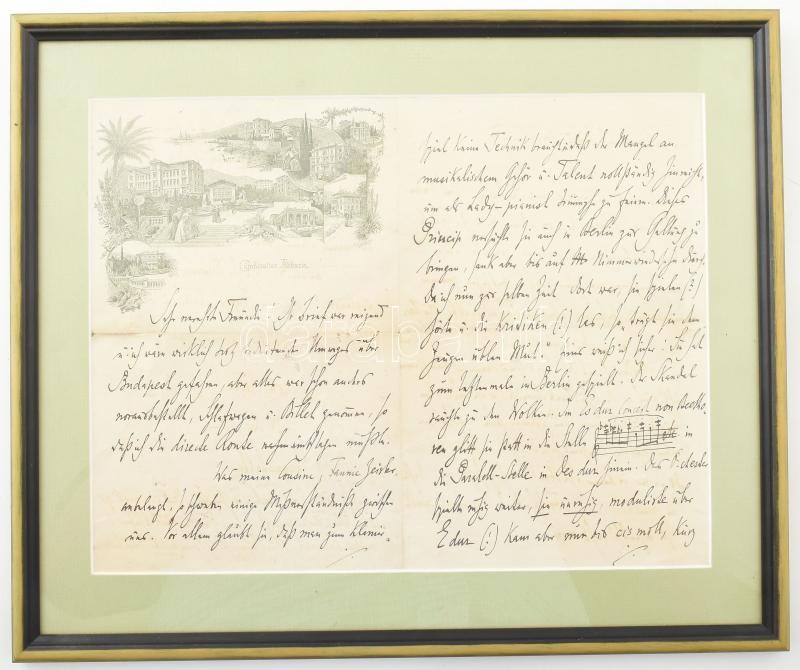 Curhäuser Abbazia.
Sehr verehrte Freunde! Ihr Brief war reizend
u. ich wäre wirklich trotz bedeutenden Umweges über
Budapest gefahren, aber alles war schon anders
vorausbestellt, Schlafwagen u. Billet genommen, so
daß ich die directe Route nachmittags mußte.
Was meine Cousine, Fannie Zeisler
anbelangt, so schweben einige Mißverständniße zwischen
uns. Vor allem glaubt sie, daß man zum Klavier-
spiel keine Technik braucht u. daß der Mangel an
musikalischem Gehör u. Talent vollständig hinreicht,
um als Lady-pianist Triumphe zu feiern. Dieses
Princip versuchte sie auch in Berlin zur Geltung zu
bringen, sank aber bis auf Nimmerwiedersehn durch.
Da ich nun zur selben Zeit dort war, sie spielen (?)
hörte u. die Kritiken (?) las, so trägt sie dem
Zeugen üblen Mut. Eins weiß ich sicher: Sie hat
zum letztenmale in Berlin gespielt. Der Skandal
rauchte zu den Wolken. Im Es dur Concert von Beetho-
ven glitt sie statt in die Stelle etc in
die Parallel-Stelle in Des dur hinein. Das Orchester
spielte ruhig weiter, sie unruhig, modulirte über
E dur (?) kam aber nur bis cis moll, kurz